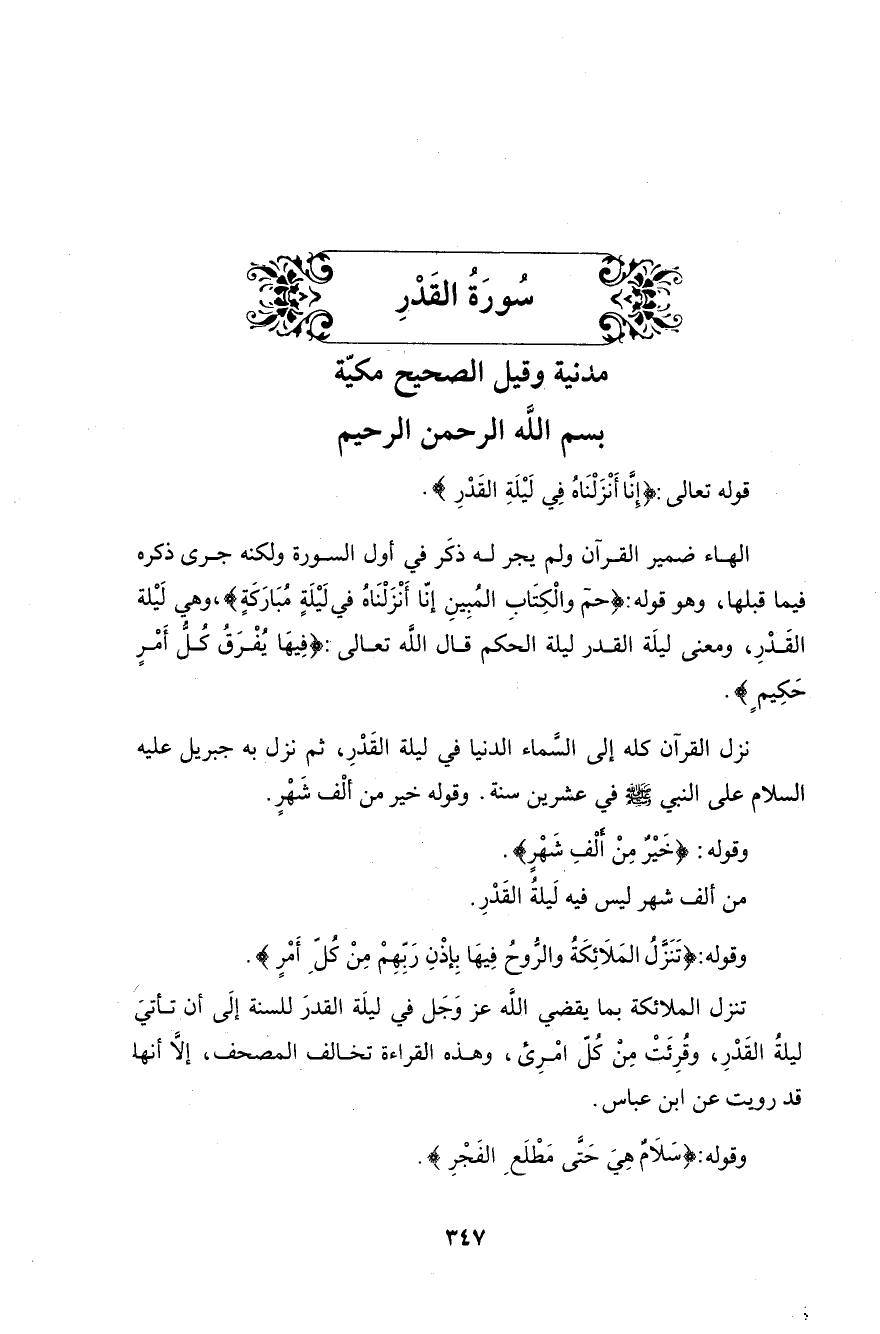 سُورَةُ القَدْرِ
مدنية وقيل الصحيح مكيّة
بسم اللَّه الرحمن الرحيم
قوله تعالى :﴿إِنَّا أَنْزَلْنَاهُ فِي لَيْلَةِ القَدْرِ ﴾.
الهـاء ضمير القـرآن ولم يجر لـه ذكَر في أول السـورة ولكنه جـرى ذكره
فيما قبلها، وهو قوله:﴿حمۤ والْكِتَابِ المُبِينِ إِنّا أَنْزَلْنَاهُ في لَيْلَةٍ مُبَارَكَةٍ﴾،وهي لَيْلة
القَـدْرِ، ومعنى ليلَة القـدر ليلة الحكم قـال اللَّه تعـالى :﴿فِيهَا يُفْـرَقُ كُـلُّ أَمْـرٍ
حَكِيمٍ﴾.
نزل القرآن كله إلى السَّماء الدنيا في ليلة القَدْرِ، ثم نزل به جبريل عليه
السلام على النبي ﷺ في عشرين سنة. وقوله خير من ألْف شَهْرٍ.
وقوله: ﴿خَيْرٌ مِنْ أَلْفِ شَهْرٍ﴾.
من ألف شهر ليس فيه لَيلةُ القَدْرِ.
وقوله:﴿تَنَزَّلُ المَلَائِكَةُ والرُّوحُ فِيهَا بِإذْنِ رَبِّهِمْ مِنْ كُلِّ أَمْرٍ ﴾.
تنزل الملائكة بما يقضي اللَّه عز وَجَل في ليلَة القدرَ للسنة إلَى أن تـأتيَ
ليلةُ القَدْرِ، وقُرِئَتْ مِنْ كُلّ امْـرِئ، وهـذه القراءة تخـالف المصحف، إلَّا أنها
قد رويت عن ابن عباس.
وقوله:﴿سَلَامٌ هِيَ حَتَّى مَطْلَعِ الفَجْرِ ﴾.
٣٤٧